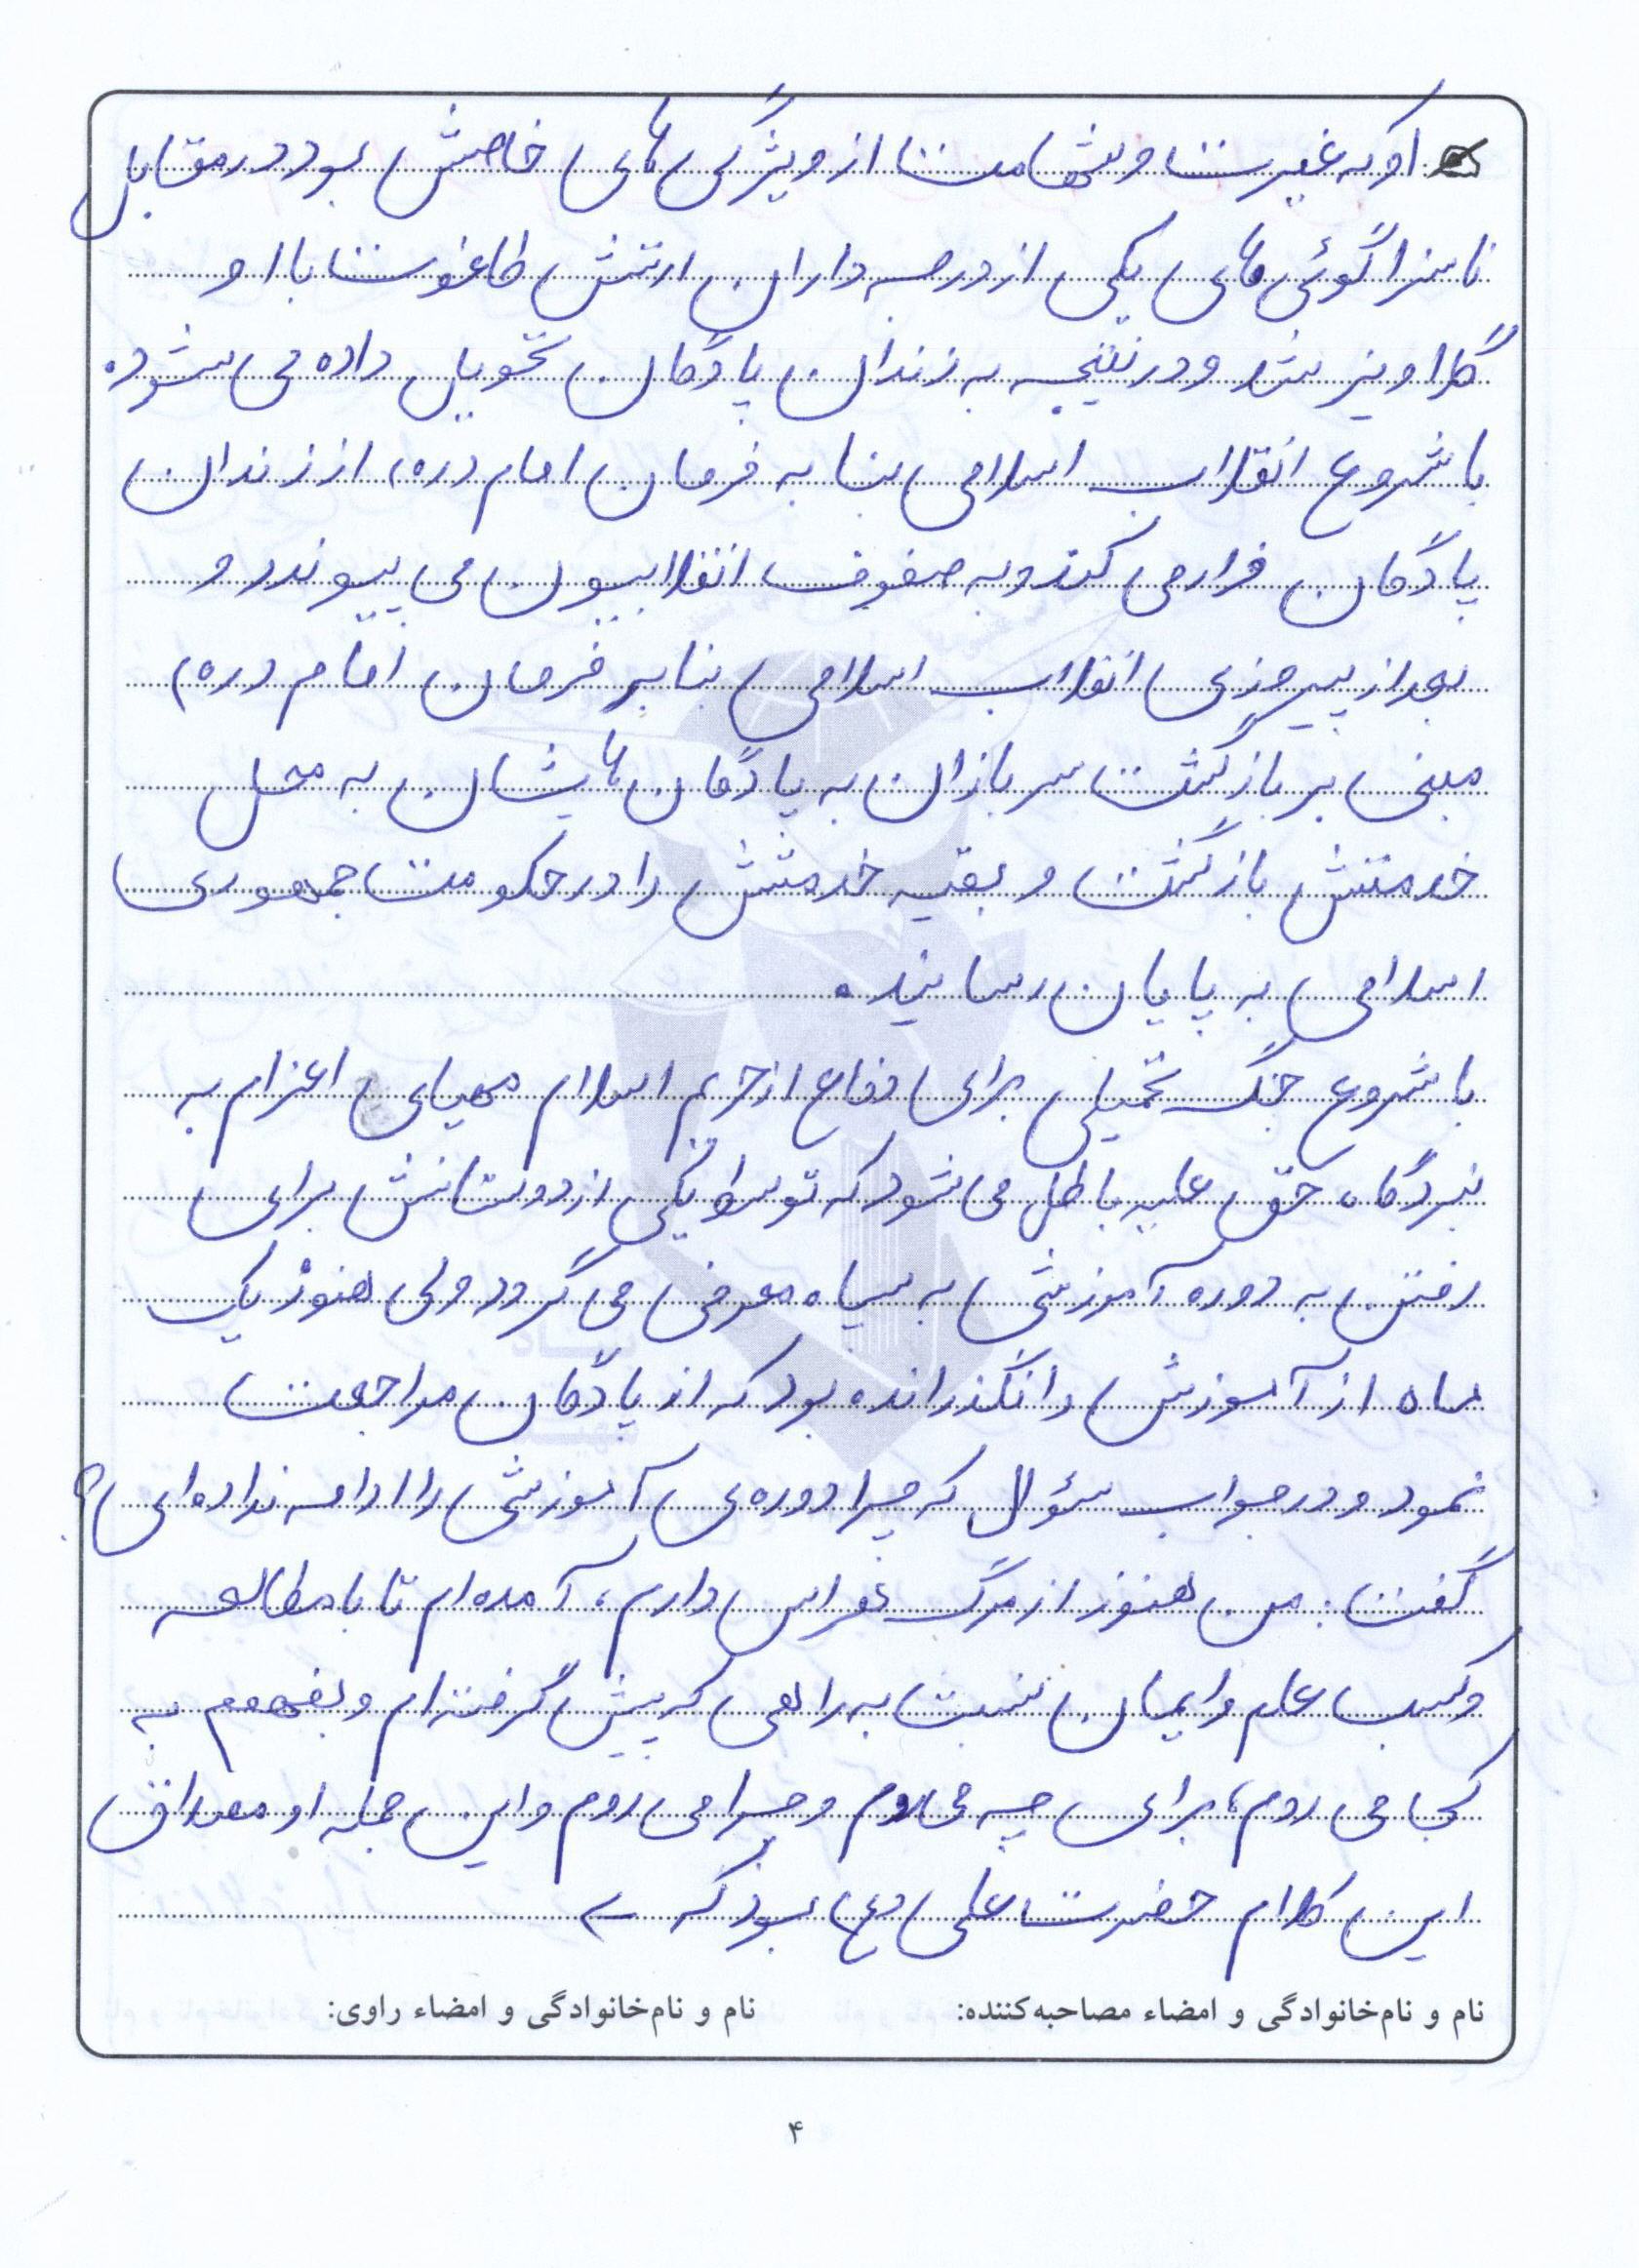 او که غیرت و شهامت از ویژگی های خاصش بود در مقابل
ناسزاگوئی های یکی از درجه داران ارتش طاغوت با او
گلاویز شد و در نتیجه به زندان پادگان تحویل داده می شود.
با شروع انقلاب اسلامی بنا به فرمان امام (ره) از زندان
پادگان فرار می کند و به صفوف انقلابیون می پیوندد و
بعد از پیروزی انقلاب اسلامی بنا بر فرمان امام (ره)
مبنی بر بازگشت سربازان به پادگان هایشان به محل
خدمتش بازگشت و بقیه خدمتش را در حکومت جمهوری
اسلامی به پایان رسانید.
با شروع جنگ تحمیلی برای دفاع از حریم اسلام مهیای اعزام به
نبردگاه حق علیه باطل می شود که توسط یکی از دوستانش برای
رفتن به دوره آموزشی به سپاه معرفی می گردد ولی هنوز یک
ماه از آموزش را نگذرانده بود که از پادگان مراجعت
نمود و در جواب سؤال که چرا دوره ی آموزشی را ادامه نداده ای؟
گفت: من هنوز از مرگ هراس دارم، آمده ام تا با مطالعه
و کسب علم و ایمان نسبت به راهی که پیش گرفته ام و بفهمم به
کجا می روم، برای چه می روم و چرا می روم و این جمله او مصداق
این کلام حضرت علی (ع) بود که ←
نام و نام‌خانوادگی و امضاء مصاحبه‌کننده: نام و نام‌خانوادگی و امضاء راوی:
۴